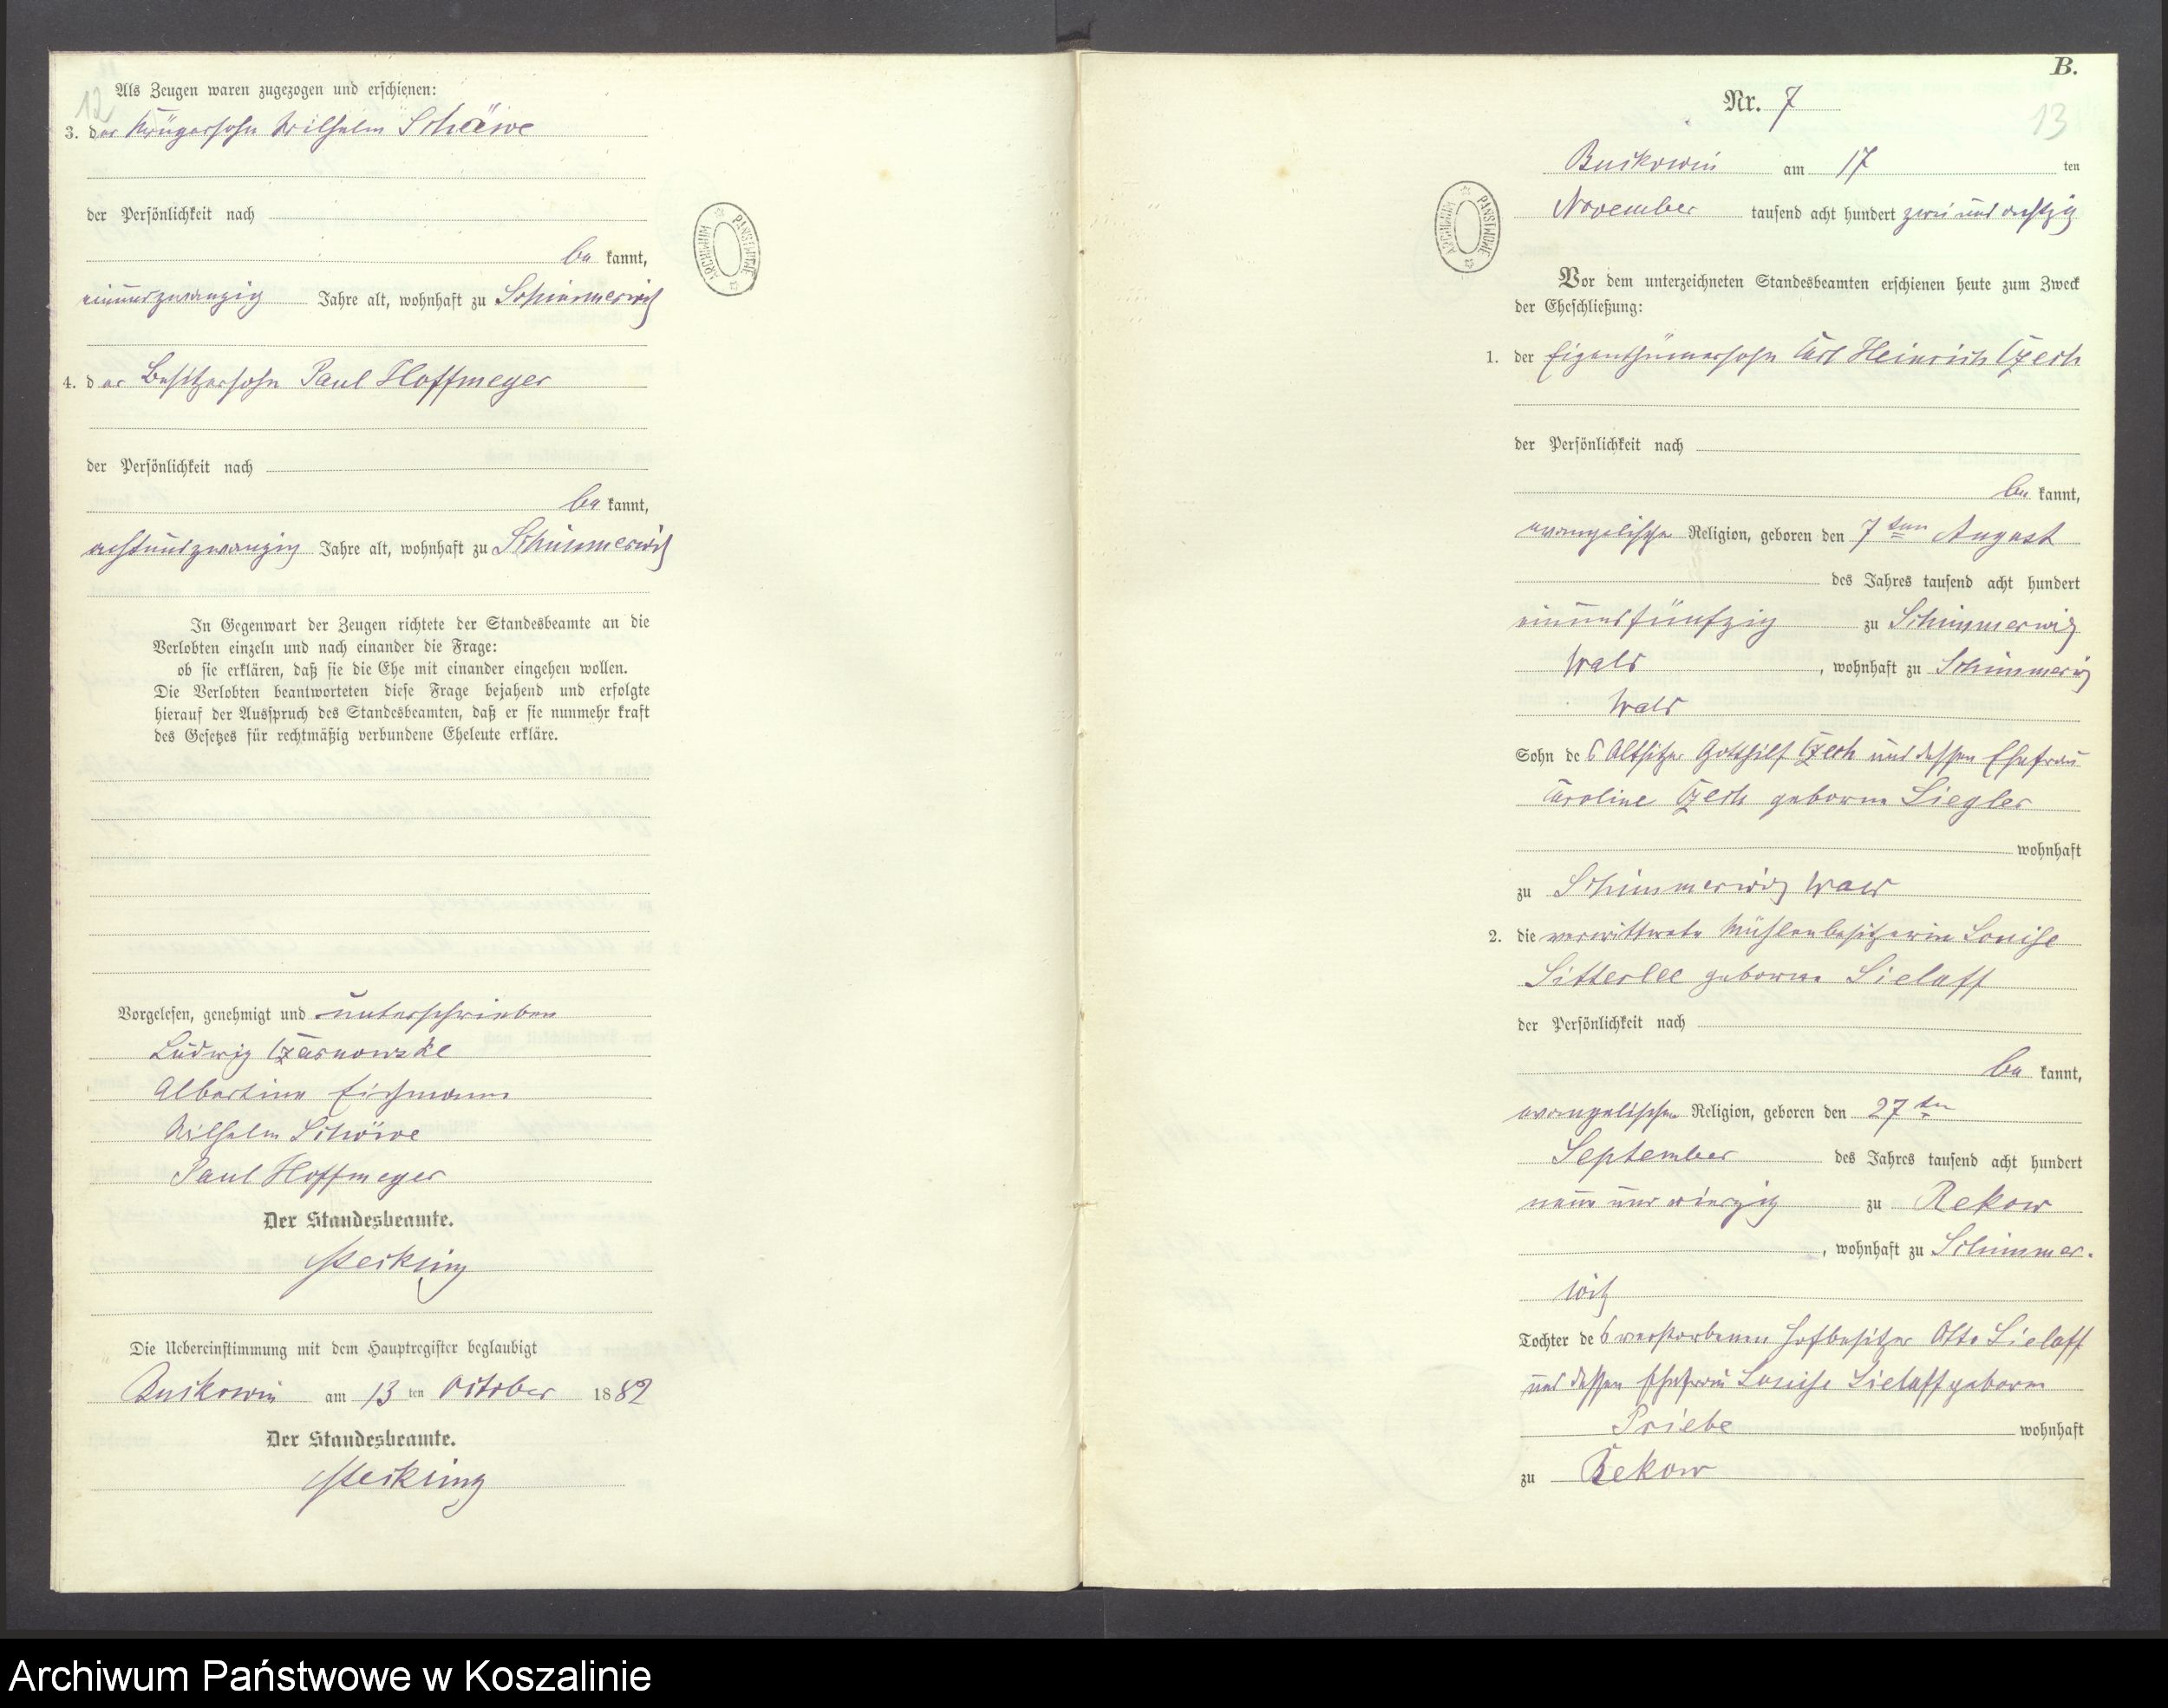 12
Als Zeugen waren zugezogen und erschienen:
3. der Krügersohn Wilhelm Schöwe
der Persönlichkeit nach
be kannt,
einundzwanzig Jahre alt, wohnhaft zu Schimmerwitz
4. der Besitzersohn Paul Hoffmeyer
der Persönlichkeit nach
be kannt,
achtundzwanzig Jahre alt, wohnhaft zu Schimmerwitz
In Gegenwart der Zeugen richtete der Standesbeamte an die
Verlobten einzeln und nach einander die Frage:
ob sie erklären, daß sie die Ehe mit einander eingehen wollen.
Die Verlobten beantworteten diese Frage bejahend und erfolgte
hierauf der Ausspruch des Standesbeamten, daß er sie nunmehr kraft
des Gesetzes für rechtmäßig verbundene Eheleute erkläre.
Vorgelesen, genehmigt und unterschrieben
Ludwig Czarnowske
Albertine Eichmann
Wilhelm Schöwe
Paul Hoffmeyer
Der Standesbeamte.
Die Uebereinstimmung mit dem Hauptregister beglaubigt
Buckowin am 13 ten October 1882
Der Standesbeamte.
ARCHIWUM PAŃSTWOWE
B.
Nr. 7
13
Buckowin am 17 ten
November tausend acht hundert zwei und achtzig
ARCHIWUM PAŃSTWOWE
Vor dem unterzeichneten Standesbeamten erschienen heute zum Zweck
der Eheschließung:
1. der Eigenthümersohn Carl Heinrich Czech
der Persönlichkeit nach
be kannt,
evangelischer Religion, geboren den 7ten August
des Jahres tausend acht hundert
einundfünfzig zu Schimmerwitz
Wald, wohnhaft zu Schimmerwitz
Wald
Sohn des Altsitzer Gotthilf Czech und dessen Ehefrau
Caroline Czech geborne Siegler
wohnhaft
zu Schimmerwitz Wald
2. die verwittwete Mühlenbesitzerin Louise
Sitterlee geborne Sielaff
der Persönlichkeit nach
be kannt,
evangelischer Religion, geboren den 27ten
September des Jahres tausend acht hundert
neun und vierzig zu Rekow
, wohnhaft zu Schimmer-
witz
Tochter des verstorbenen Hofbesitzer Otto Sielaff
und dessen Ehefrau Louise Sielaff geborne
Priebe wohnhaft
zu Rekow
Archiwum Państwowe w Koszalinie